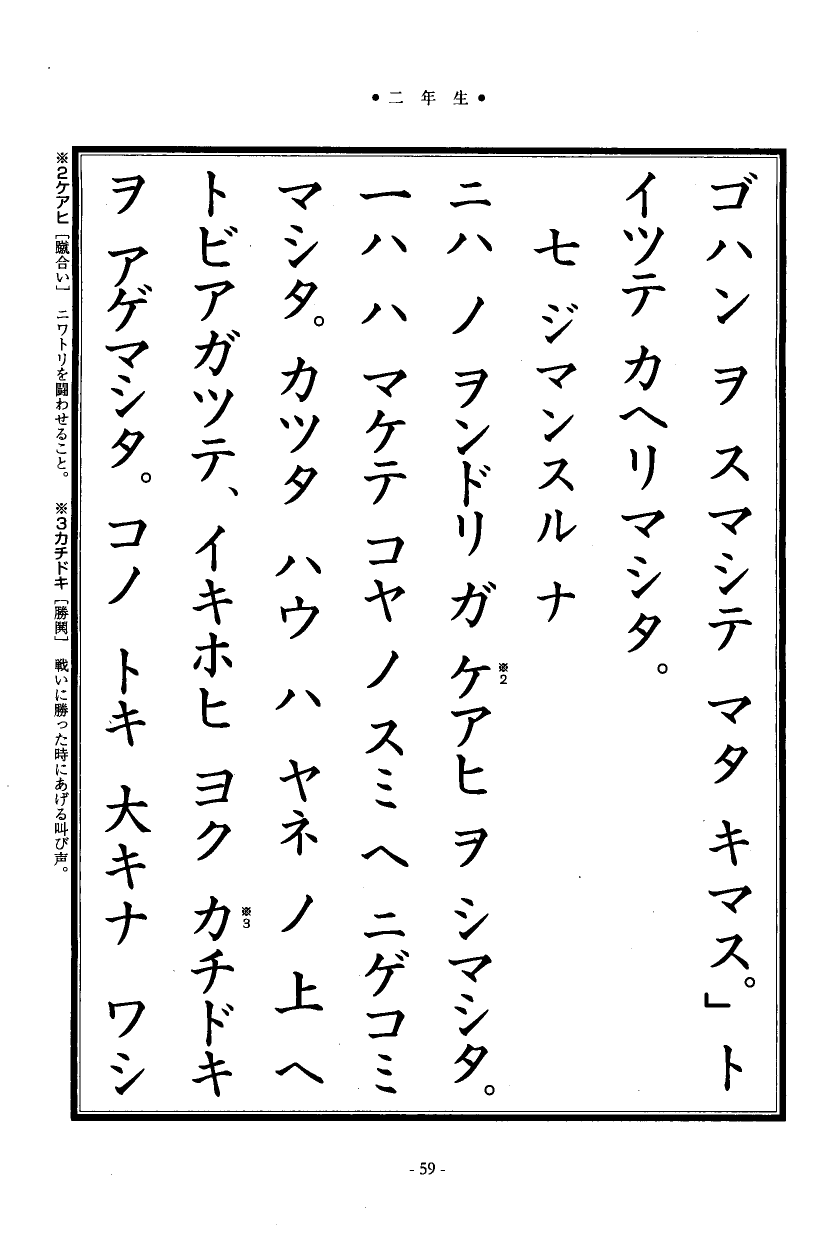 ● 二年生 ●
ゴハン ヲ スマシテ マタ キマス。」ト
イツテ カヘリマシタ。
七 ジマンスルナ
ニハ ノ ヲンドリ ガ ケアヒ ヲ シマシタ。
※2
一ハ ハ マケテ コヤ ノ スミ ヘ ニゲコミ
マシタ。カツタ ハウ ハ ヤネ ノ 上 ヘ
トビアガツテ、イキホヒ ヨク カチドキ
※3
ヲ アゲマシタ。コノ トキ 大キナ ワシ
※2ケアヒ［蹴合い］ ニワトリを闘わせること。 ※3カチドキ［勝鬨］ 戦いに勝った時にあげる叫び声。
- 59 -